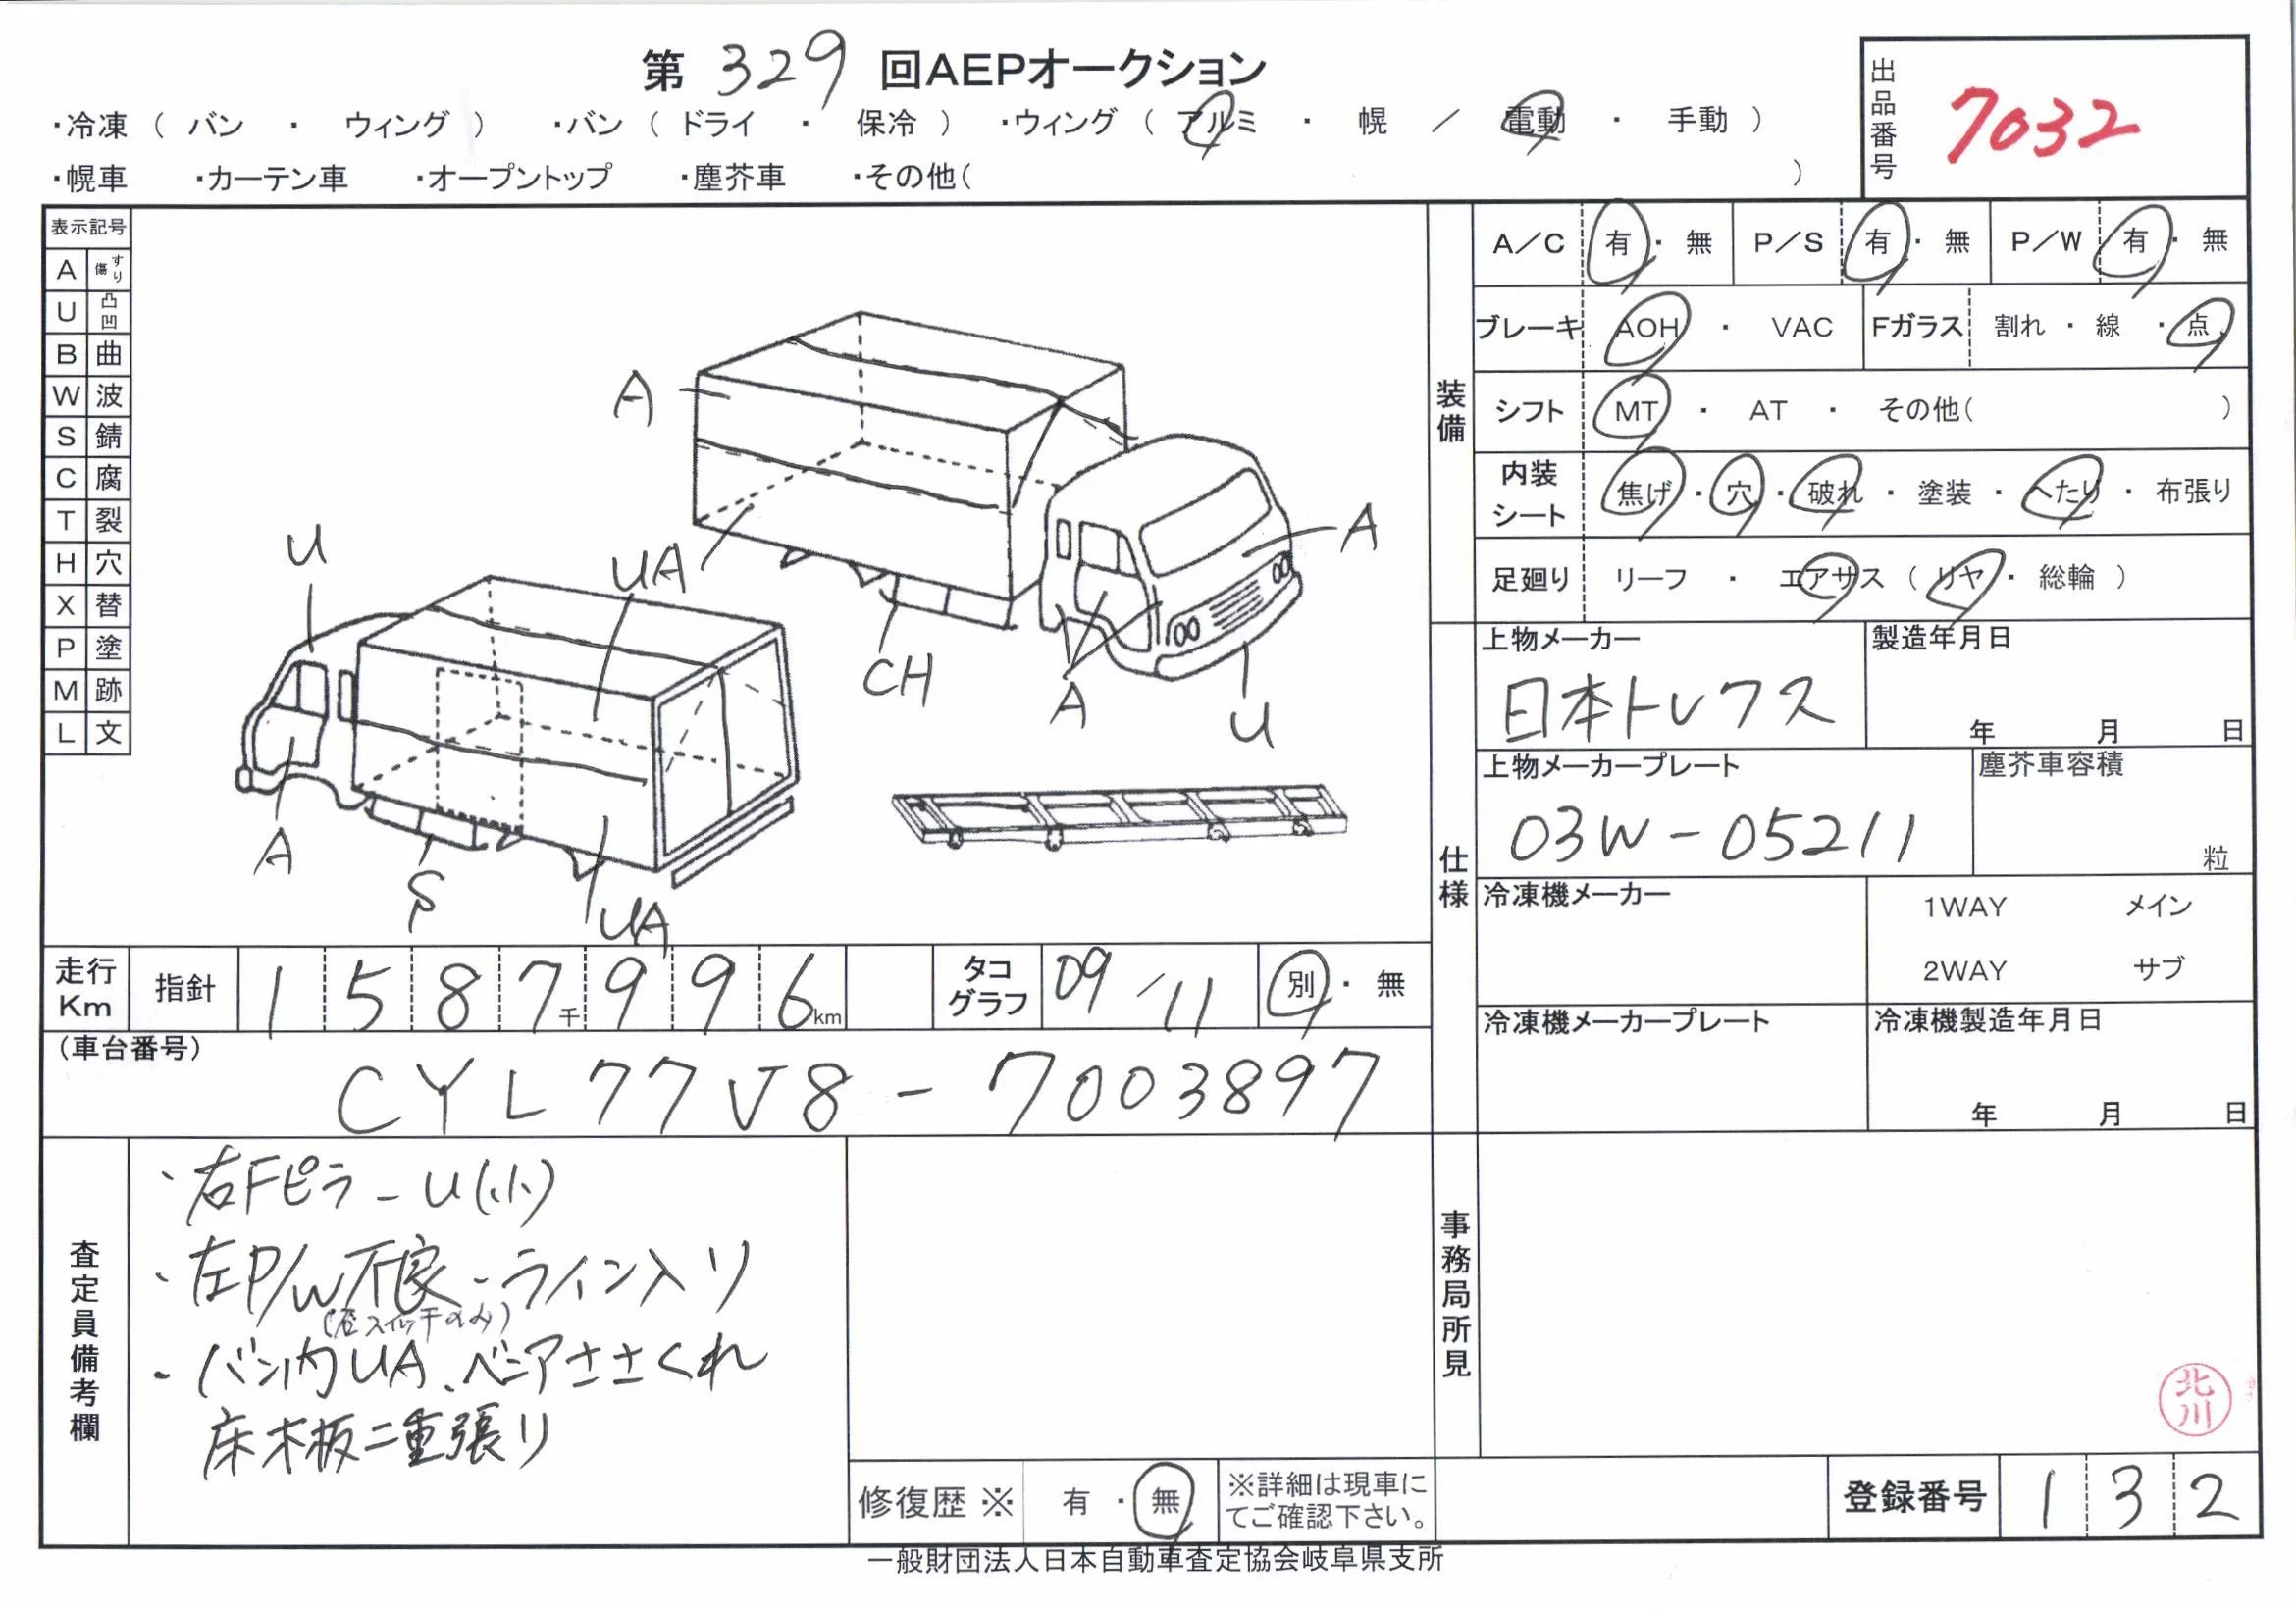 第 329 回AEPオークション
・冷凍（ バン ・ ウィング ） ・バン（ ドライ ・ 保冷 ） ・ウィング（ アルミ ・ 幌 ／ 電動 ・ 手動 ）
・幌車 ・カーテン車 ・オープントップ ・塵芥車 ・その他（ ）
出品番号 7032
表示記号
A すり傷
U 凸凹
B 曲
W 波
S 錆
C 腐
T 裂
H 穴
X 替
P 塗
M 跡
L 文
A
UA
CH
A
A
U
U
UA
A
S
UA
装備
A／C 有・無 P／S 有・無 P／W 有・無
ブレーキ AOH ・ VAC Fガラス 割れ・線・点
シフト MT ・ AT ・ その他（ ）
内装シート 焦げ・穴・破れ・塗装・へたり・布張り
足廻り リーフ ・ エアサス（ リヤ・総輪 ）
仕様
上物メーカー 日本トレクス
製造年月日 年 月 日
上物メーカープレート 03W-05211
塵芥車容積 粒
冷凍機メーカー
1WAY メイン
2WAY サブ
冷凍機メーカープレート
冷凍機製造年月日 年 月 日
走行Km 指針 1 5 8 7千 9 9 6km タコグラフ 09/11 別・無
（車台番号）
CYL77V8-7003897
査定員備考欄
・右Fピラ-U(小)
・左P/W不良・ライン入リ
・バン内UA、ベニアささくれ
床木板二重張リ
修復歴※ 有・無 ※詳細は現車にてご確認下さい。
事務局所見
北川
登録番号 132
一般財団法人日本自動車査定協会岐阜県支所